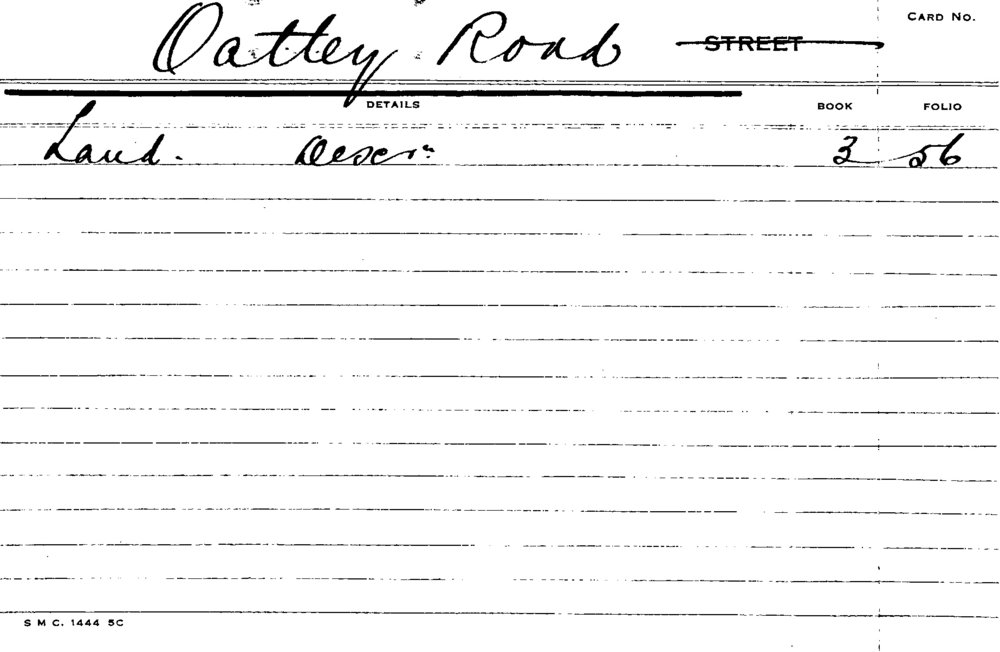 Oatley Road STREET CARD NO.
DETAILS BOOK FOLIO
Land. Descrn 3 56
S M C. 1444 5C